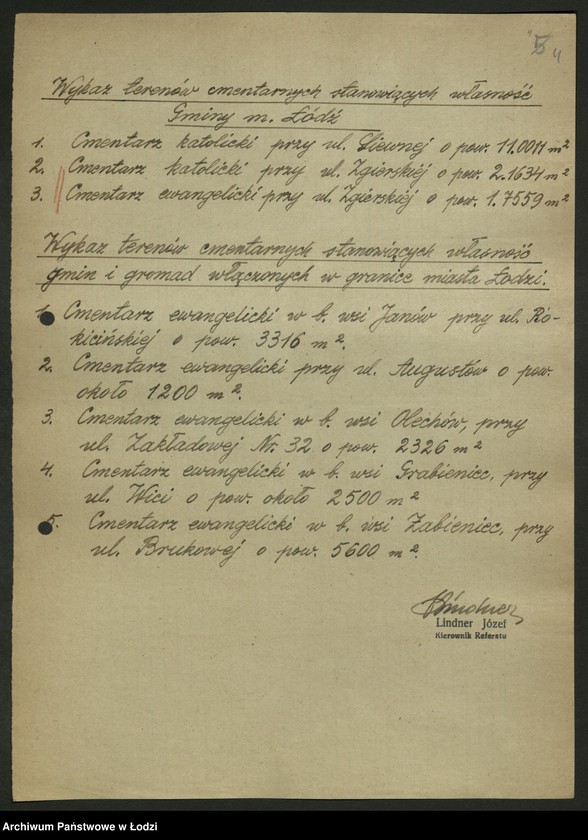 4
Wykaz terenów cmentarnych stanowiących własność
Gminy m. Łódź
1. Cmentarz katolicki przy ul. Siewnej o pow. 11.0011 m²
2. Cmentarz katolicki przy ul. Zgierskiéj o pow. 2.1634 m²
3. Cmentarz ewangelicki przy ul. Zgierskiéj o pow. 1.7559 m²
Wykaz terenów cmentarnych stanowiących własność
gmin i gromad włączonych w granice miasta Łodzi.
1. Cmentarz ewangelicki w b. wsi Janów przy ul. Ro-
kicińskiéj o pow. 3316 m².
2. Cmentarz ewangelicki przy ul. Augustów o pow.
około 1200 m².
3. Cmentarz ewangelicki w b. wsi Olechów, przy
ul. Zakładowej Nr. 32 o pow. 2326 m²
4. Cmentarz ewangelicki w b. wsi Grabieniec, przy
ul. Wici o pow. około 2500 m²
5. Cmentarz ewangelicki w b. wsi Żabieniec, przy
ul. Brukowej o pow. 5600 m².
Lindner
Lindner Józef
Kierownik Referatu
Archiwum Państwowe w Łodzi